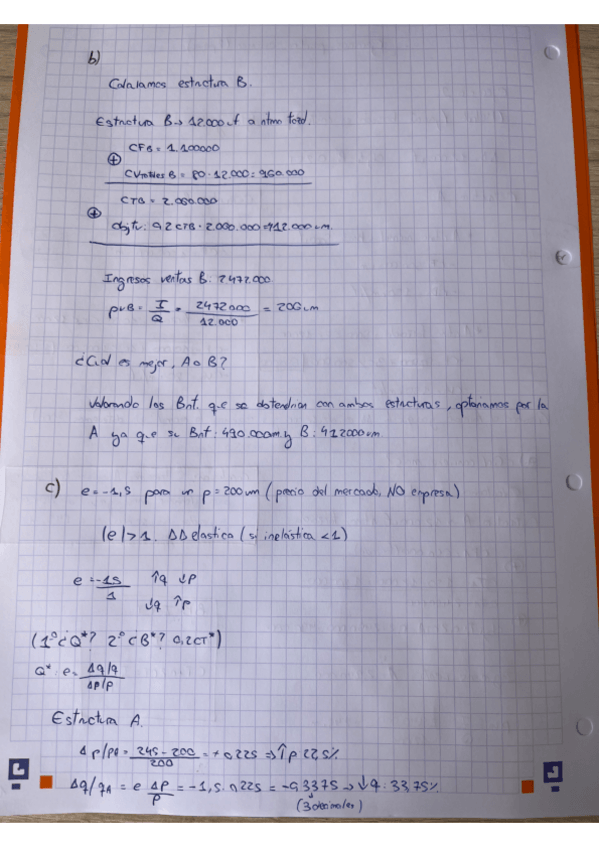 b)
Calculamos estructura B.
Estructura B → 12.000 uf a ntmo total.
CFB = 1.100000
⊕
CVmtles B = 80 · 12.000 = 960.000
CTB = 2.060.000
⊕
objtv: 0,2 CTB · 2.000.000 = 412.000 um.
Ingresos ventas B: 2472.000
PvB = I/Q = 2472000/12.000 = 206 um
¿Cual es mejor, A o B?
Valorando los Bnf. que se obtendrian con ambas estructuras, optariamos por la
A ya que su Bnf: 490.000um. y B: 412000um.
c) e = -1,5 para un p = 200 um (precio del mercado, NO empresa)
|e| > 1. ΔΔ elastica (si inelástica < 1)
e = -1,5/1 ↑q ↓p
↓q ↑p
(1º ¿Q*? 2º ¿B*? 0,2CT*)
Q* : e = Δq/q / Δp/p
Estructura A.
Δp/pA = 245 - 200/200 = + 0,225 ⇒ ↑p 22,5%
Δq/qA = e Δp/p = -1,5 · 0,225 = -0,3375 → ↓q · 33,75%
(3 decimales)